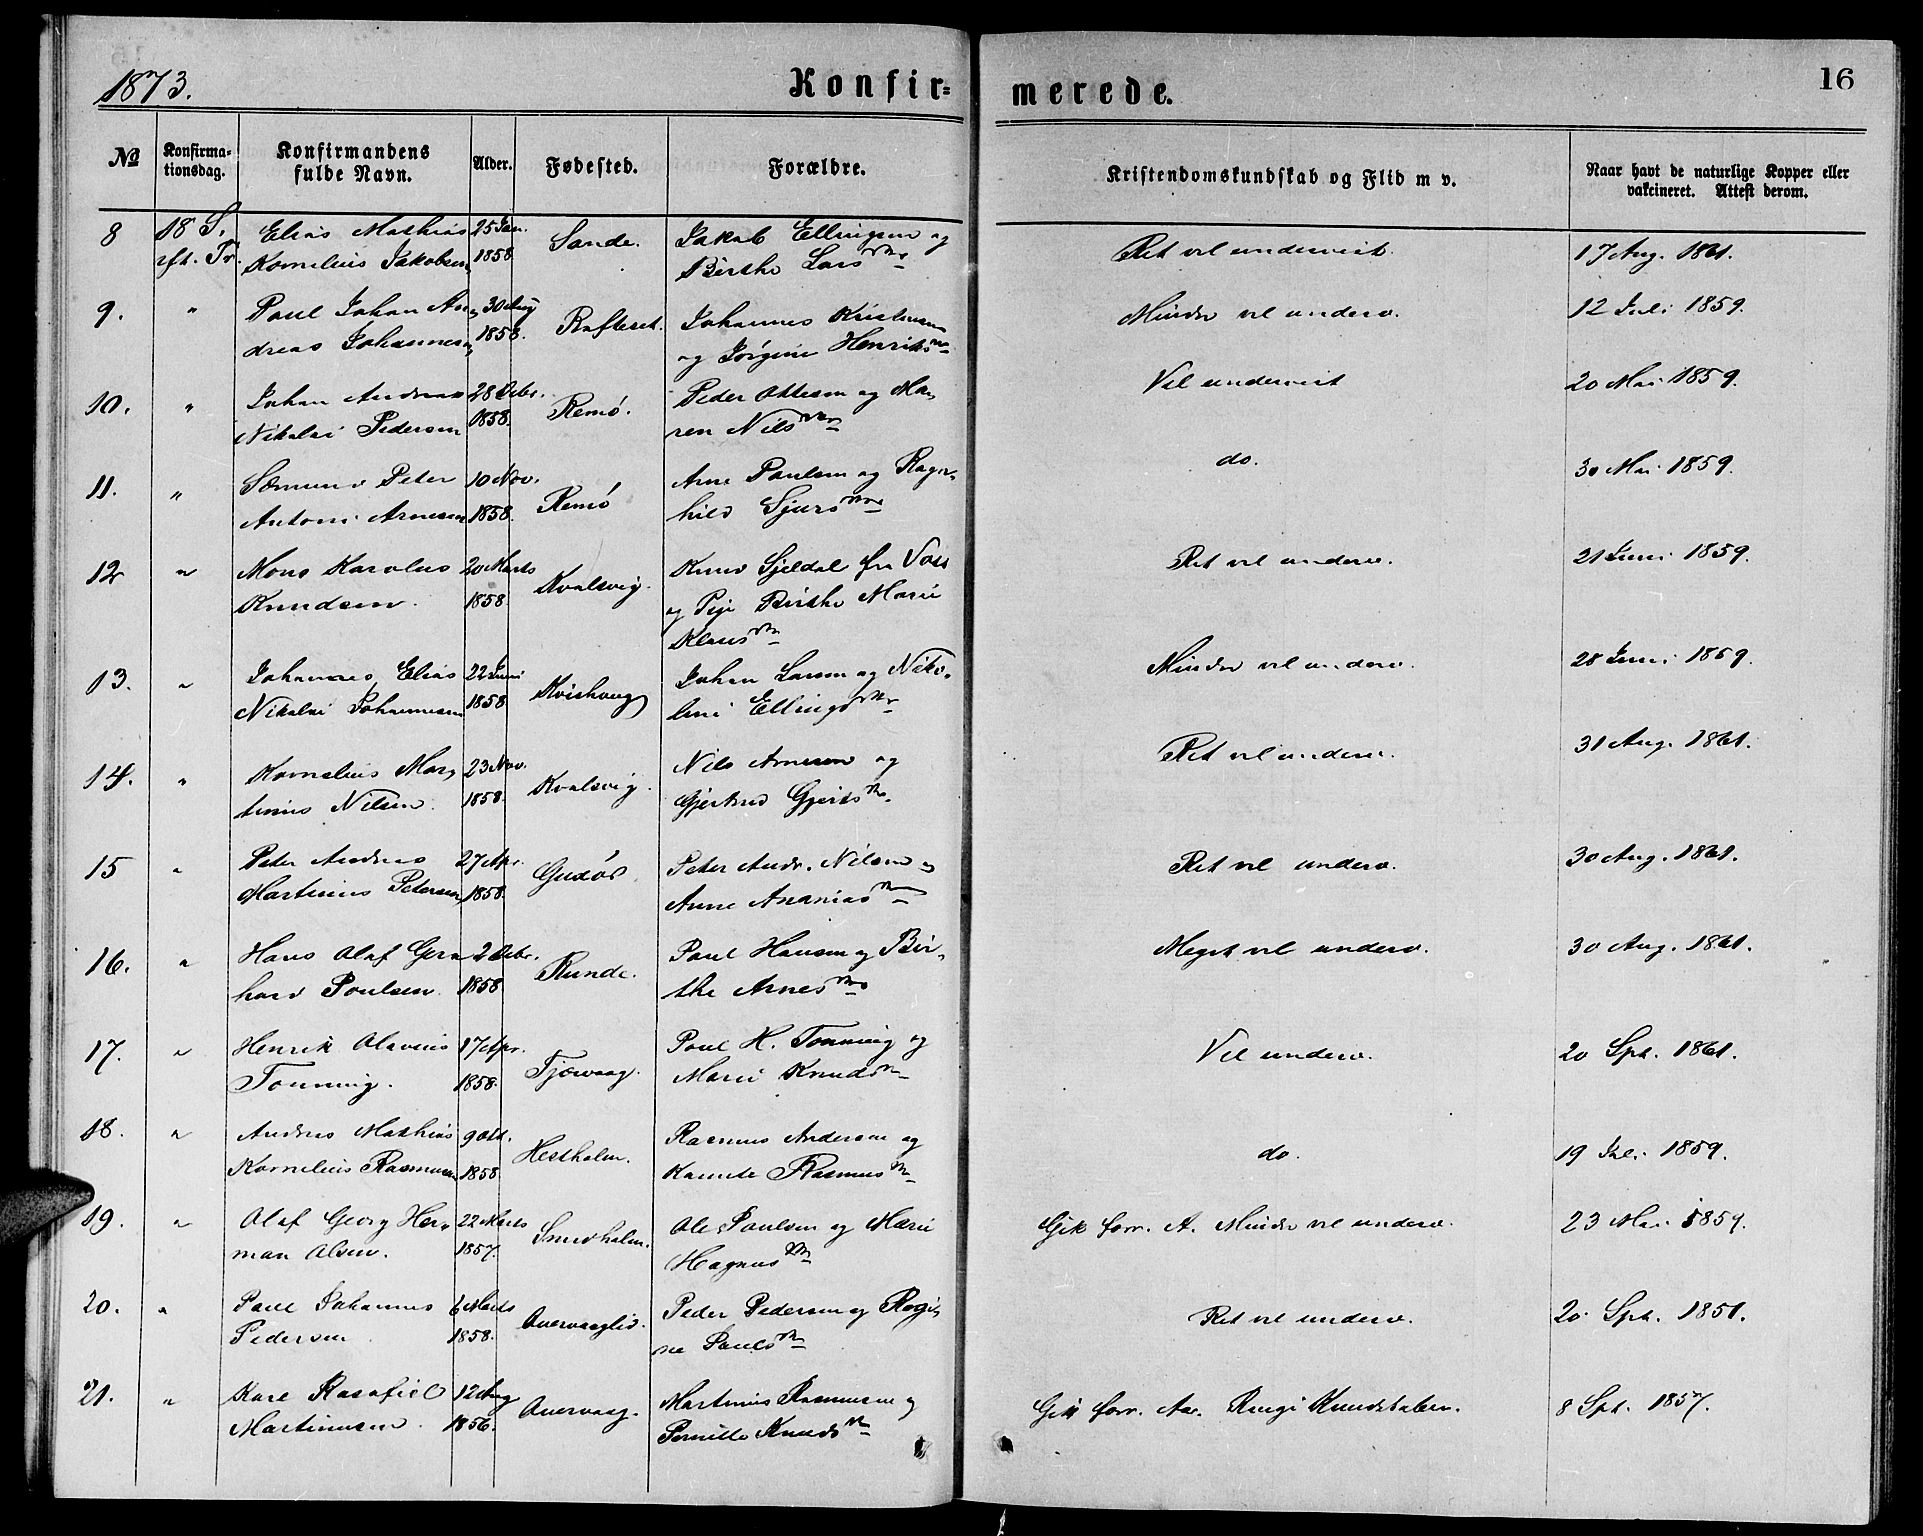 1873.
Konfir=
merede.
16
No
Konfirma-
tionsdag.
Konfirmandens
fulde Navn.
Alder.
Fødested.
Forældre.
Kristendomskundskab og Flid m v.
Naar havt de naturlige Kopper eller
vakcineret. Attest derom.
8 18 S. Elias Mathias 25 Jan. Sande. Jakob Ellingsen og Ret vel undervist. 17 Aug. 1861.
eft. Tr. Kornelius Jakobsen 1858 Birthe Larsdtr
9. " Paul Johan An- 30 Aug Rafteset. Johannes Kristensen Mindre vel underv. 12 Juli 1859.
dreas Johannesen 1858. og Jørgine Henriksdtr
10. " Johan Andreas 28 Debr. Remø. Peder Ottesen og Ma- Vel undervist 20 Mai 1859.
Nikolai Pedersen 1858. ren Nilsdtr
11. " Sæmund Peter 10 Nov. Remø Arne Paulsen og Ragn- do. 30 Mai 1859.
Antoni Arnesen 1858. hild Sjursdtr
12 " Mons Karolus 20 Marts Kvalsvig. Knud Gjeldal fra Voss Ret vel underv. 21 Juni 1859.
Knudsen. 1858. og Pige Birthe Marie
Klausdtr
13. " Johannes Elias 22 Juni Johan Larsen og Niko- Mindre vel underv. 28 Juni 1859.
Nikolai Johannesen 1858 line Ellingsdtr
14. " Kornelius Mar- 23 Nov. Kvalsvig. Nils Arnesen og Ret vel underv. 31 Aug. 1861.
tinus Nilsen. 1858. Gjertrud Gjertsdtr.
15 " Peter Andreas 27 Apr. Peter Andr. Nilsen og Ret vel underv. 30 Aug. 1861.
Martinus Petersen 1858. Anne Ananiasdtr
16. " Hans Olaf Ger- 2 Debr. Runde. Paul Hansen og Bir- Meget vel underv. 30 Aug. 1861.
hard Poulsen. 1858 the Arnesdtr
17. " Henrik Olavius 17 Apr. Tjørvaag. Poul H. Tonning og Vel underv. 20 Spt. 1861.
Tonning. 1858. Marie Knudsdtr
18. " Andreas Mathias 9 Okt. Hestholm. Rasmus Andersen og do. 19 Juli 1859.
Kornelius Rasmussen 1858 Rasmusdtr
19. " Olaf Georg Her- 22 Marts Smedholm. Ole Poulsen og Marie Gik forr. A. Mindre vel underv. 23 Mai 1859.
man Olsen. 1857. Magnusdtr
20. " Paul Johannes 6 Marts Peder Pedersen og Regi- Ret vel underv. 20 Spt. 1851.
Pedersen 1858. ne Paulsdtr
21. " Karl 12 Aug Martinus Rasmussen og Gik forr. Aar. Ringe Kundskaber. 8 Spt. 1857.
Martinusen. 1856. Pernille Knudsdtr